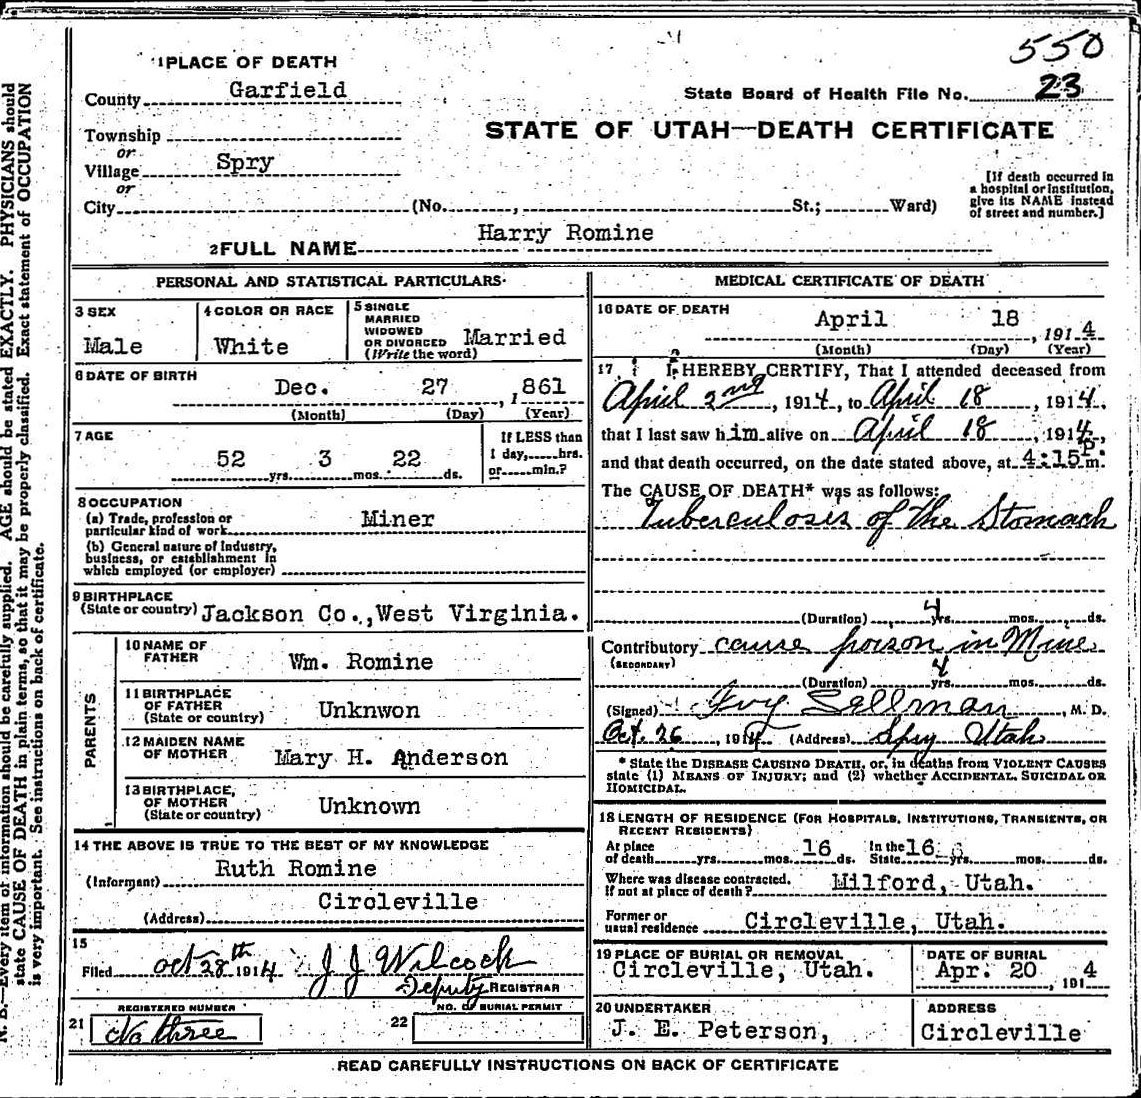 550
1 PLACE OF DEATH
County Garfield
State Board of Health File No. 23
Township
or
Village Spry
or
City (No. , St.; Ward)
STATE OF UTAH—DEATH CERTIFICATE
[If death occurred in
a hospital or institution,
give its NAME instead
of street and number.]
2 FULL NAME Harry Romine
PERSONAL AND STATISTICAL PARTICULARS
3 SEX
Male
4 COLOR OR RACE
White
5 SINGLE
MARRIED
WIDOWED
OR DIVORCED
(Write the word)
Married
6 DATE OF BIRTH
Dec. 27, 1861
(Month) (Day) (Year)
7 AGE
52 yrs. 3 mos. 22 ds.
If LESS than
1 day, hrs.
or min.?
8 OCCUPATION
(a) Trade, profession or
particular kind of work Miner
(b) General nature of industry,
business, or establishment in
which employed (or employer)
9 BIRTHPLACE
(State or country) Jackson Co.,West Virginia.
PARENTS
10 NAME OF
FATHER Wm. Romine
11 BIRTHPLACE
OF FATHER
(State or country) Unknwon
12 MAIDEN NAME
OF MOTHER Mary H. Anderson
13 BIRTHPLACE,
OF MOTHER
(State or country) Unknown
14 THE ABOVE IS TRUE TO THE BEST OF MY KNOWLEDGE
(Informant) Ruth Romine
(Address) Circleville
15
Filed Oct 28th 1914 J J Wilcock
Deputy REGISTRAR
REGISTERED NUMBER
21 No three
NO. OF BURIAL PERMIT
22
MEDICAL CERTIFICATE OF DEATH
16 DATE OF DEATH
April 18, 1914
(Month) (Day) (Year)
17 I HEREBY CERTIFY, That I attended deceased from
April 2nd, 1914, to April 18, 1914,
that I last saw him alive on April 18, 1914,
and that death occurred, on the date stated above, at 4:15 P m.
The CAUSE OF DEATH* was as follows:
Tuberculosis of the Stomach
(Duration) 4 yrs. mos. ds.
Contributory cause poison in Mine
(SECONDARY)
(Duration) 4 yrs. mos. ds.
(Signed) Ivy Sellman, M. D.
Oct. 26, 1914 (Address) Spry Utah
* State the DISEASE CAUSING DEATH, or, in deaths from VIOLENT CAUSES
state (1) MEANS OF INJURY; and (2) whether ACCIDENTAL, SUICIDAL OR
HOMICIDAL.
18 LENGTH OF RESIDENCE (FOR HOSPITALS, INSTITUTIONS, TRANSIENTS, OR
RECENT RESIDENTS)
At place
of death yrs. mos. 16 ds. In the State 16 yrs. mos. ds.
Where was disease contracted,
If not at place of death? Milford, Utah.
Former or
usual residence Circleville, Utah.
19 PLACE OF BURIAL OR REMOVAL
Circleville, Utah.
DATE OF BURIAL
Apr. 20, 1914
20 UNDERTAKER
J. E. Peterson,
ADDRESS
Circleville
READ CAREFULLY INSTRUCTIONS ON BACK OF CERTIFICATE
N. B.—Every item of information should be carefully supplied. AGE should be stated EXACTLY. PHYSICIANS should
state CAUSE OF DEATH in plain terms, so that it may be properly classified. Exact statement of OCCUPATION
is very important. See instructions on back of certificate.